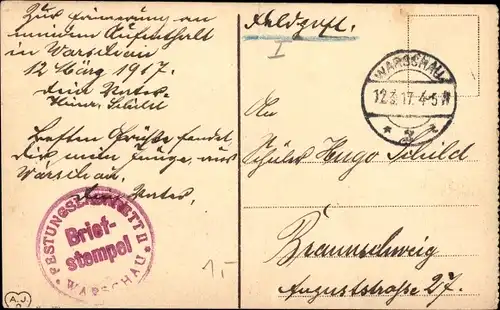 Zur Erinnerung an
meinen Aufenthalt
in Warschau
12 März 1917.
Dein Vater
Heinr. Schild
Besten Gruß sendet
Dir mein Junge, aus
Warschau.
Dein Vater.
FESTUNGSLAZARETT II
Brief-
stempel
WARSCHAU
1,-
A.J.
Feldpost.
I
WARSCHAU
12.3.17. 4-5 N
An
Schüler Hugo Schild
Braunschweig
Auguststraße 27.